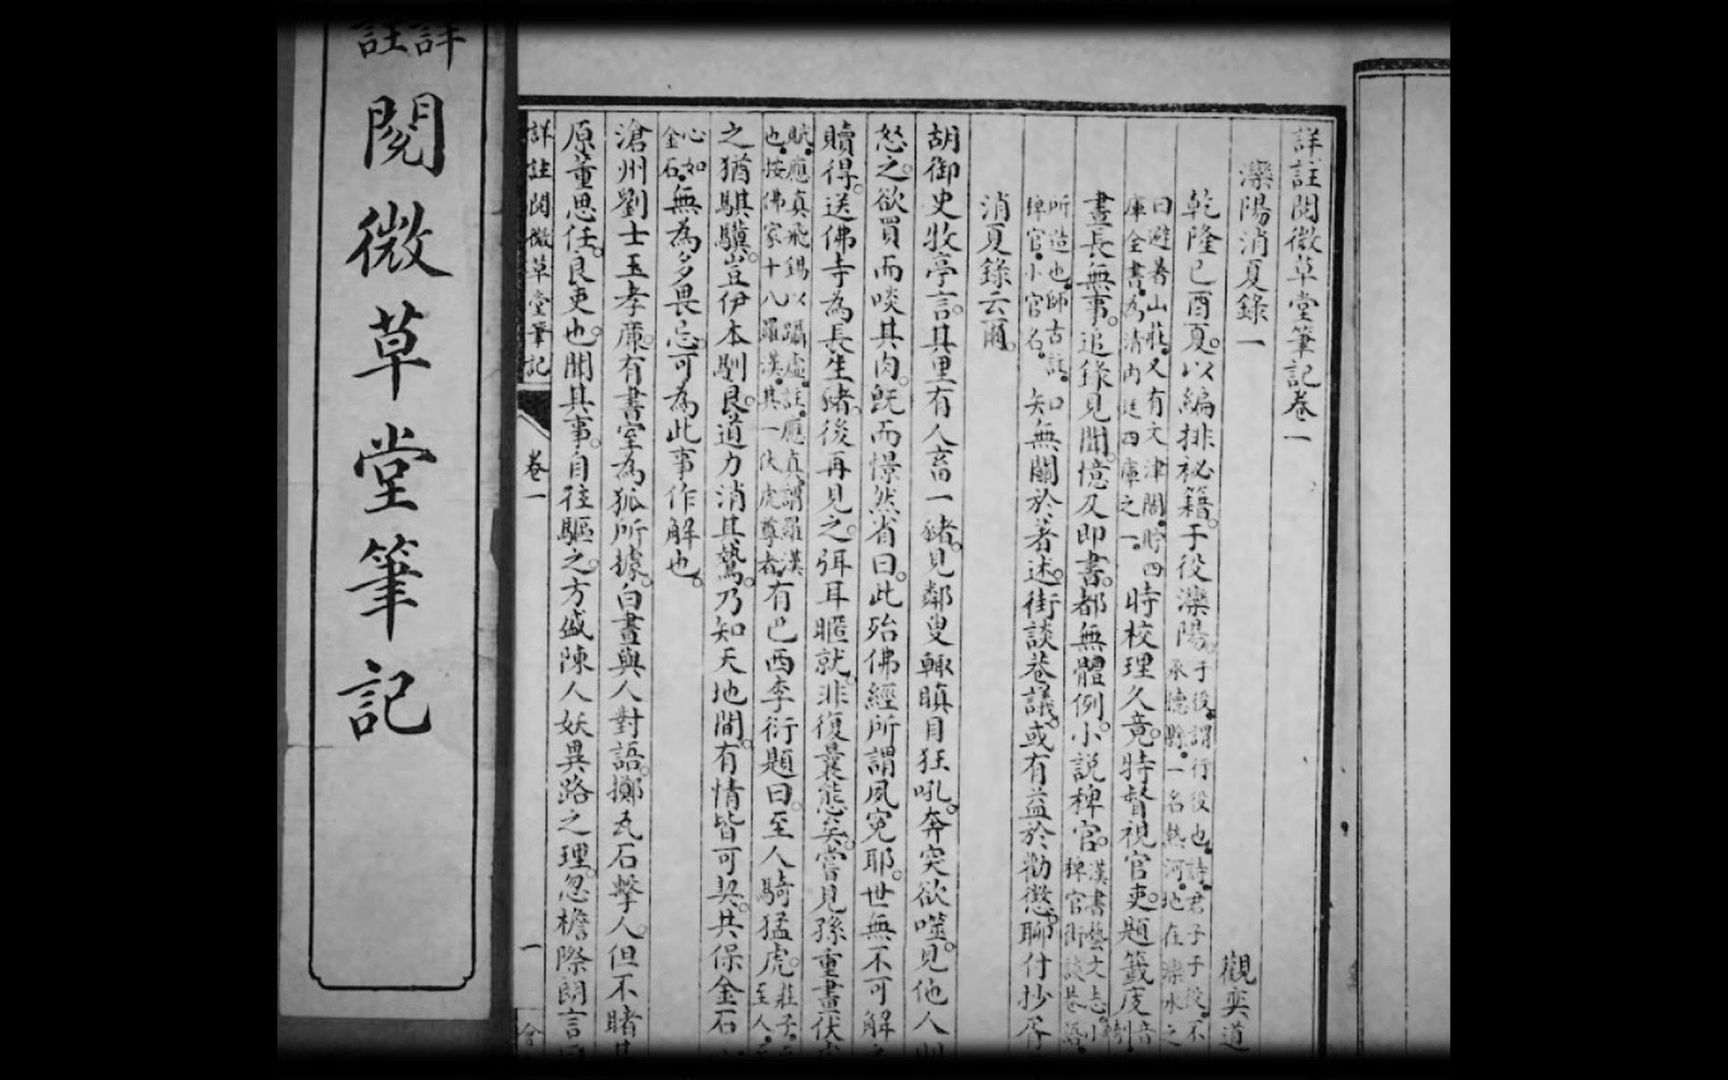 詳註
閱微草堂筆記
詳註閱微草堂筆記卷一
灤陽消夏錄一
觀奕道
乾隆己酉夏。以編排祕籍。于役灤陽。
于役。謂行役也。詩。君子于役。不
承德縣。一名熱河。地在灤水之
曰避暑山莊。又有文津閣。貯四
庫全書。為清內廷四庫之一。
時校理久竟。特督視官吏。題籤庋
晝長無事。追錄見聞。憶及即書。都無體例。小說稗官。
漢書藝文志。小
稗官街談巷語。
所造也。師古註。
稗官。小官名。
知無關於著述。街談巷議。或有益於勸懲。聊付抄胥
消夏錄云爾。
胡御史牧亭言。其里有人畜一豬。見鄰叟輒瞋目狂吼。奔突欲噬。見他人則
怒之。欲買而啖其肉。旣而憬然省曰。此殆佛經所謂夙冤耶。世無不可解之
贖得。送佛寺為長生豬。後再見之。弭耳暱就。非復曩態矣。嘗見孫重畫伏虎
賦。應真飛錫以躡虛。註。應真謂羅漢
也。按佛家十八羅漢。其一伏虎尊者。
有巴西李衍題曰。至人騎猛虎。
莊子。至
至人。
之猶騏驥。豈伊本馴良。道力消其鷙。乃知天地間。有情皆可契。共保金石
心如
金石。
無為多畏忌。可為此事作解也。
滄州劉士玉孝廉。有書室為狐所據。白晝與人對語。擲瓦石擊人。但不睹其
原董思任。良吏也。聞其事。自往驅之。方盛陳人妖異路之理。忽檐際朗言曰
詳註閱微草堂筆記
卷一
一